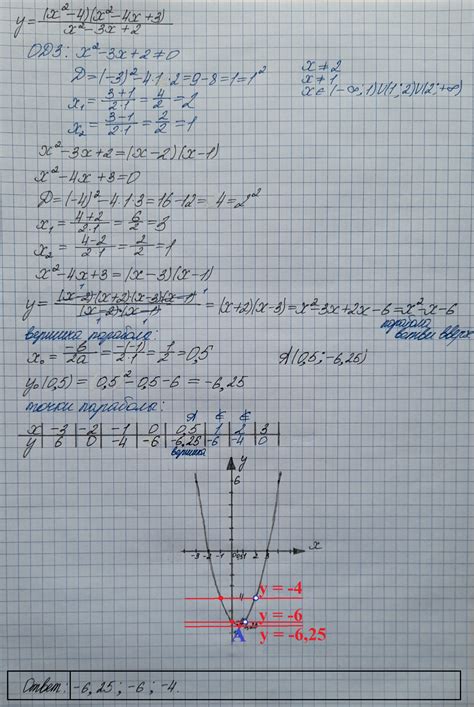 y = (x²-4)(x²-4x+3) / x²-3x+2
ОДЗ: x²-3x+2≠0
D = (-3)²-4·1·2 = 9-8 = 1 = 1²
x₁ = 3+1 / 2·1 = 4/2 = 2
x₂ = 3-1 / 2·1 = 2/2 = 1
x ≠ 2
x ≠ 1
x∈(-∞;1)U(1;2)U(2;+∞)
x²-3x+2 = (x-2)(x-1)
x²-4x+3=0
D = (-4)²-4·1·3 = 16-12 = 4 = 2²
x₁ = 4+2 / 2·1 = 6/2 = 3
x₂ = 4-2 / 2·1 = 2/2 = 1
x²-4x+3 = (x-3)(x-1)
y = (x-2)(x+2)(x-3)(x-1) / (x-2)(x-1) = (x+2)(x-3) = x²-3x+2x-6 = x²-x-6
парабола
ветви вверх
вершина параболы:
x₀ = -b/2a = -(-1)/2·1 = 1/2 = 0,5
A(0,5; -6,25)
y₀(0,5) = 0,5²-0,5-6 = -6,25
точки параболы:
x -3 -2 -1 0 0,5 1 2 3
y 6 0 -4 -6 -6,25 -6 -4 0
вершина
y
6
-3 -2 -1 2 3 x
y = -4
y = -6
A y = -6,25
Ответ: -6,25; -6; -4.